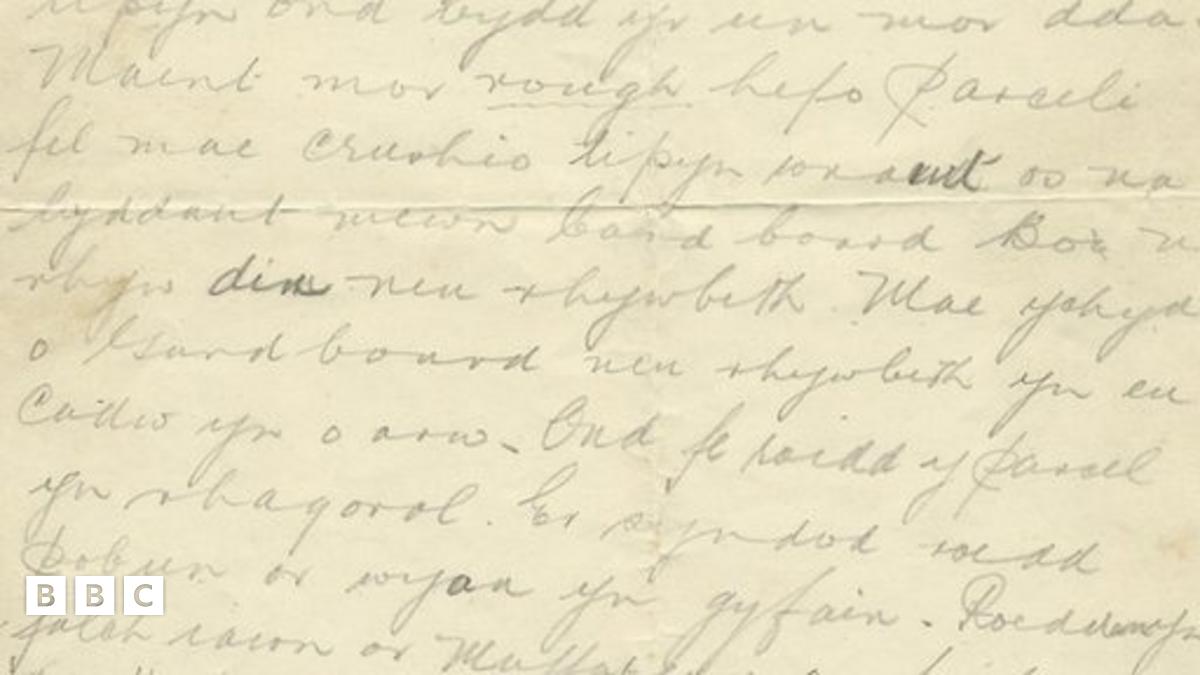 lipyn ond bydd yr un mor dda
Maent mor rough hefo parceli
fel mae crushio lipyn wnant os na
byddant mewn Card board Box
rhyw din neu rhywbeth. Mae ychyd
o Gard board neu rhywbeth yn eu
Cadw yn o arw - Ond fe roedd y parcel
yn rhagorol. Er syndod roedd
Pob un or wyau yn gyfain. Roeddwn yn
falch iawn or
BBC